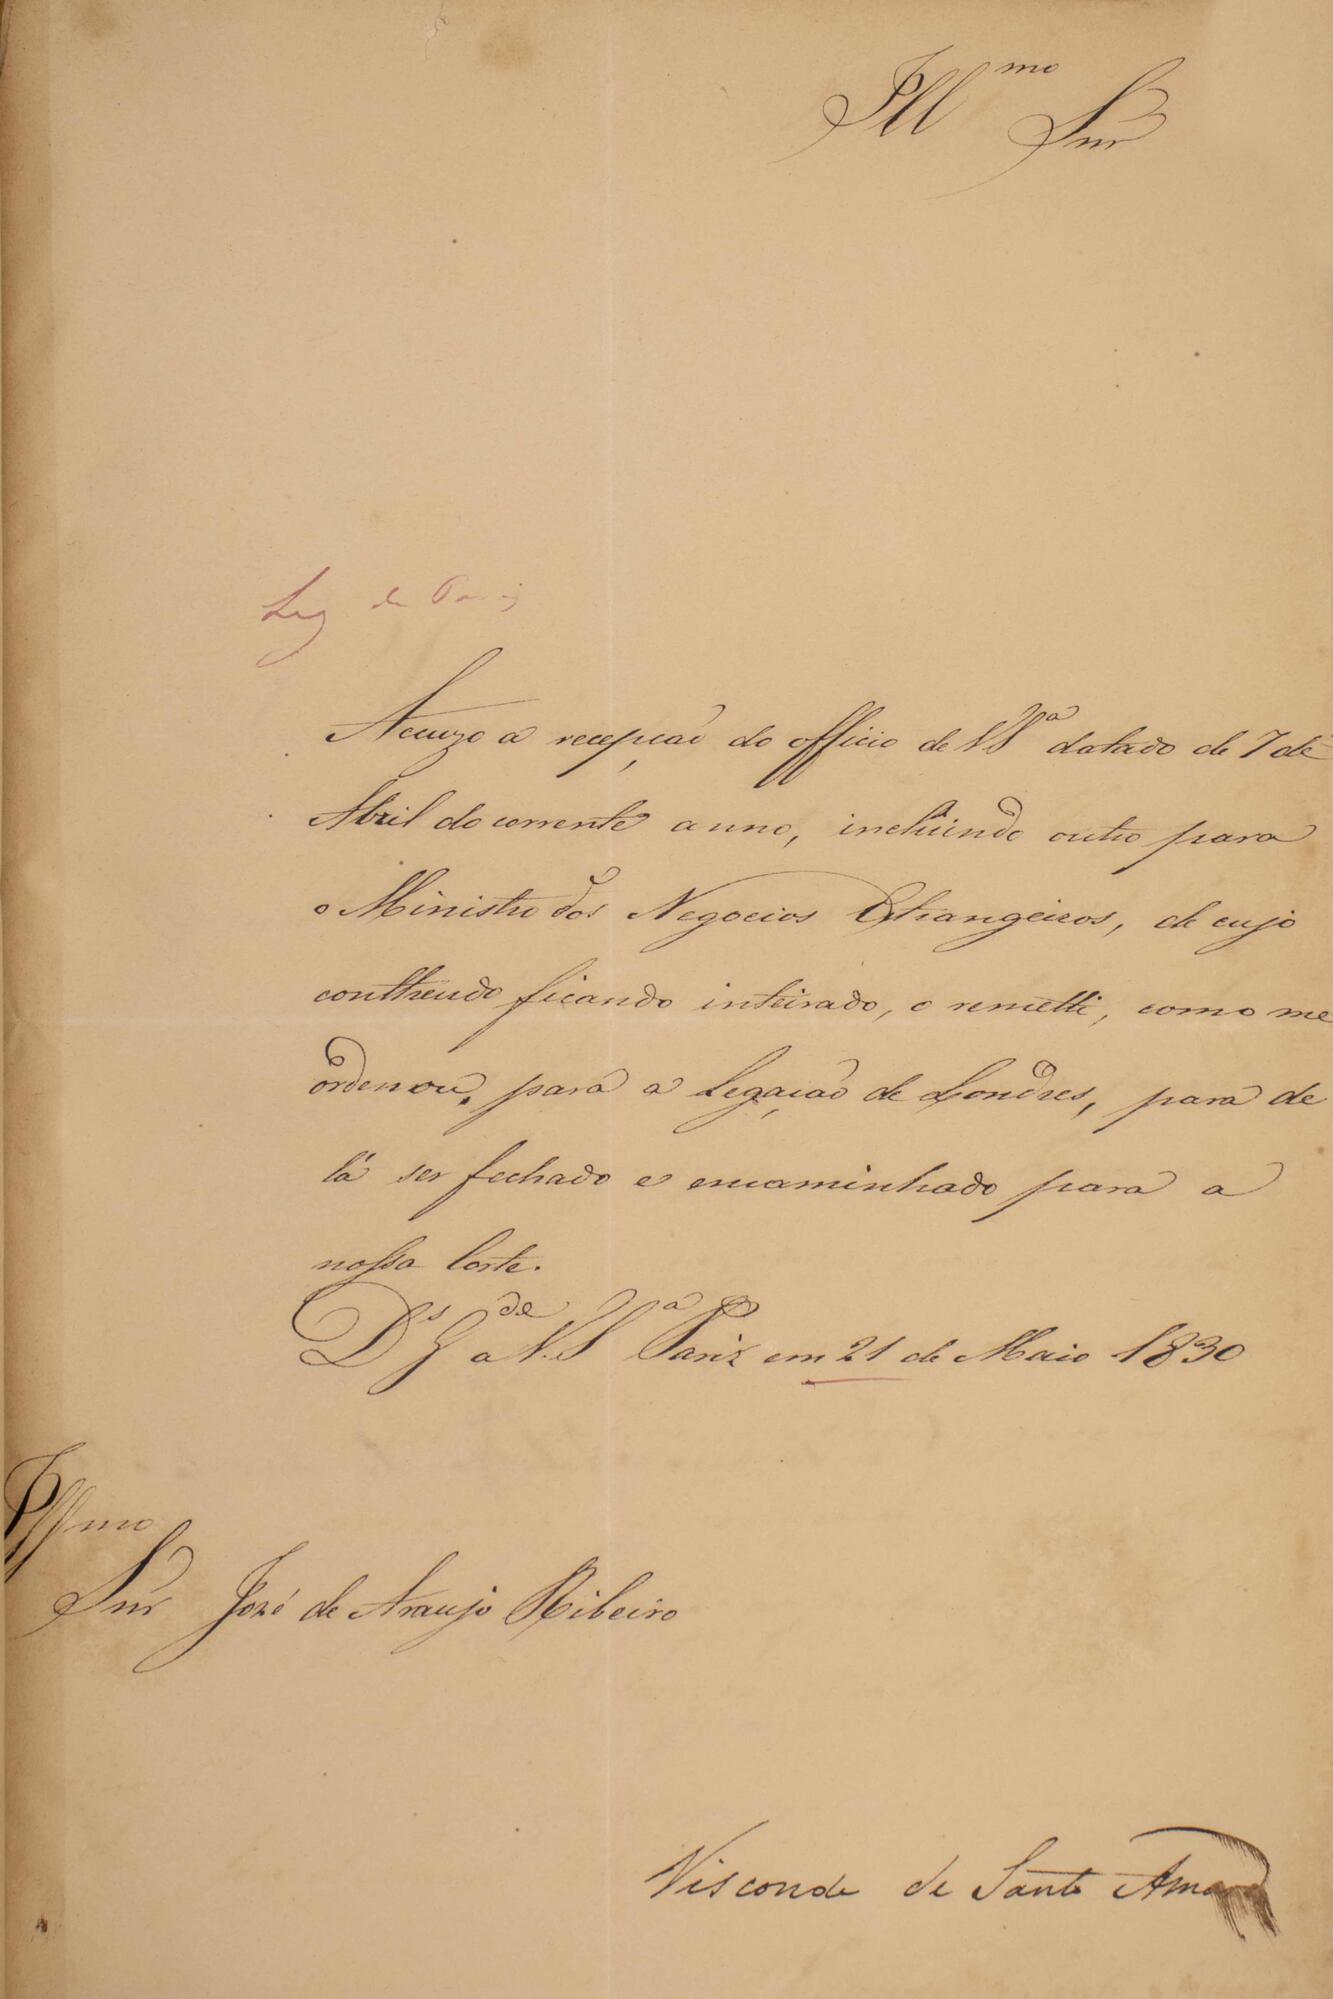 Ill.mo Snr
Leg de Pariz
Accuzo a recepção do officio de V Sª datado de 7 de
Abril do corrente anno, incluindo outro para
o Ministro dos Negocios Estrangeiros, de cujo
contheudo ficando inteirado, o remetti, como me
ordenou, para a Legação de Londres, para de
lá ser fechado e encaminhado para a
nossa Corte.
Ds Gde a V. Sª Pariz em 21 de Maio 1830
Illmo
Snr José de Araujo Ribeiro
Visconde de Santo Amaro